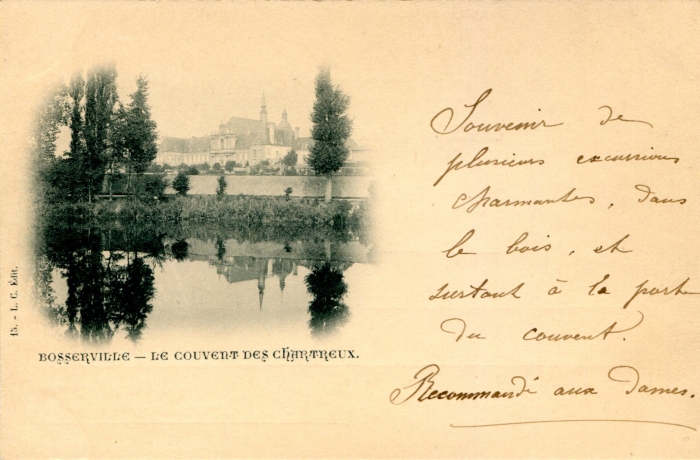 15. - L. C. Édit.
BOSSERVILLE — LE COUVENT DES CHARTREUX.
Souvenir de
plusieurs excursions
charmantes, dans
le bois, et
surtout à la porte
du couvent.
Recommandé aux Dames.